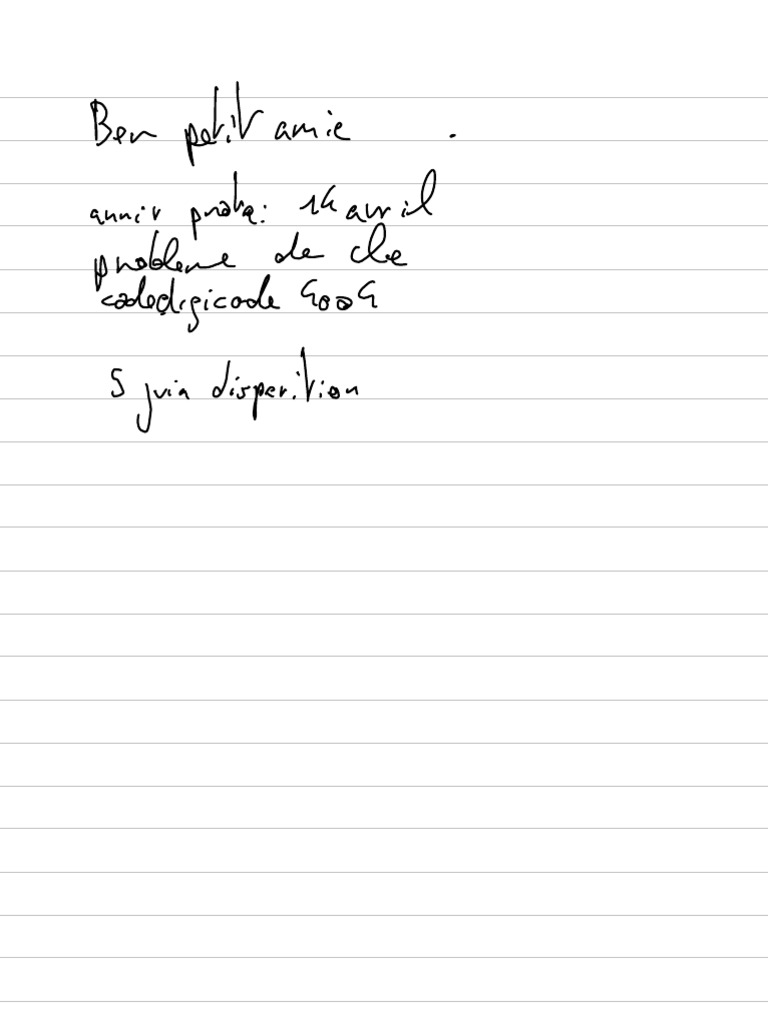 Ben petit amie .
anniv proba: 14 avril
probleme de cle
codedigicode 9009
5 juin disparition